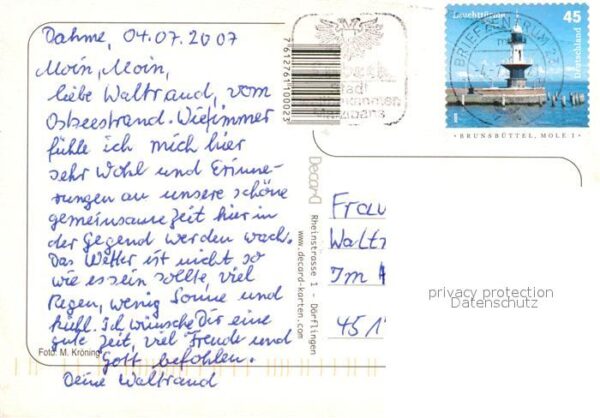 Dahme, 04.07.2007
Moin, Moin,
liebe Waltraud, vom
Ostseestrand. Wie immer
fühle ich mich hier
sehr wohl und Erinne-
rungen an unsere schöne
gemeinsame Zeit hier in
der Gegend werden wach.
Das Wetter ist nicht so
wie es sein sollte, viel
Regen, wenig Sonne und
kühl. Ich wünsche Dir eine
gute Zeit, viel Freude und
Gott befohlen.
Deine Waltraud
Foto: M. Kröning
7612761100023
Decard
Rheinstrasse 1 - Dörflingen
www.decard-karten.com
BRIEFZENTRUM 23
Stadt
Leuchttürme
45
Deutschland
BRUNSBÜTTEL, MOLE 1
Frau
Walt
Im
451
privacy protection
Datenschutz